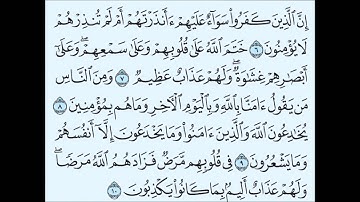 إِنَّ ٱلَّذِينَ كَفَرُوا۟ سَوَآءٌ عَلَيْهِمْ ءَأَنذَرْتَهُمْ أَمْ لَمْ تُنذِرْهُمْ
لَا يُؤْمِنُونَ ٦ خَتَمَ ٱللَّهُ عَلَىٰ قُلُوبِهِمْ وَعَلَىٰ سَمْعِهِمْ ۖ وَعَلَىٰٓ
أَبْصَٰرِهِمْ غِشَٰوَةٌ ۖ وَلَهُمْ عَذَابٌ عَظِيمٌ ٧ وَمِنَ ٱلنَّاسِ
مَن يَقُولُ ءَامَنَّا بِٱللَّهِ وَبِٱلْيَوْمِ ٱلْءَاخِرِ وَمَا هُم بِمُؤْمِنِينَ ٨
يُخَٰدِعُونَ ٱللَّهَ وَٱلَّذِينَ ءَامَنُوا۟ وَمَا يَخْدَعُونَ إِلَّآ أَنفُسَهُمْ
وَمَا يَشْعُرُونَ ٩ فِى قُلُوبِهِم مَّرَضٌ فَزَادَهُمُ ٱللَّهُ مَرَضًا ۖ
وَلَهُمْ عَذَابٌ أَلِيمٌۢ بِمَا كَانُوا۟ يَكْذِبُونَ ١٠